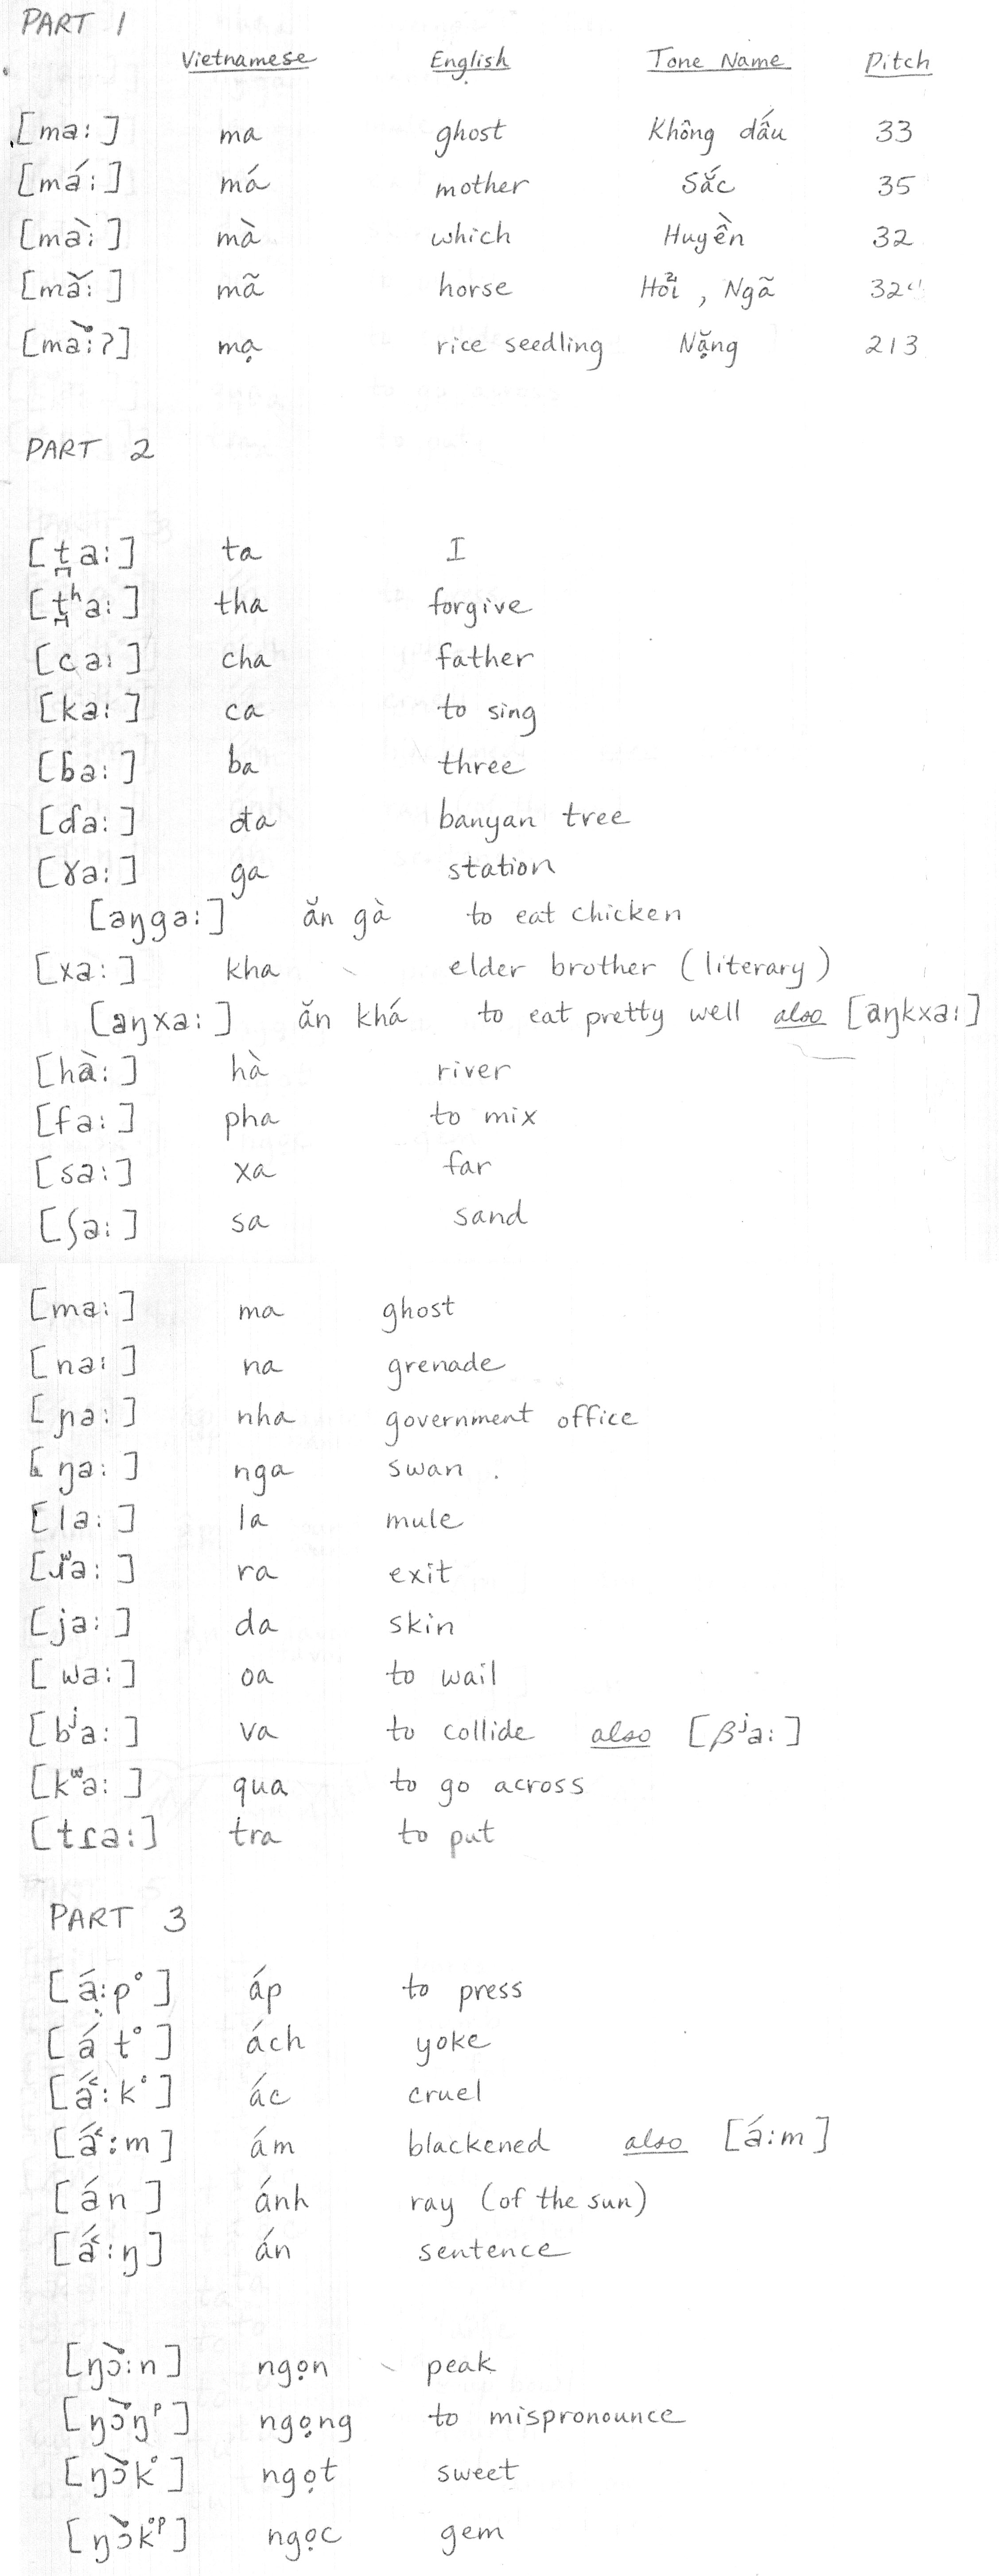 PART 1
Vietnamese English Tone Name Pitch
[maː] ma ghost Không dấu 33
[máː] má mother Sắc 35
[màː] mà which Huyền 32
[mǎː] mã horse Hỏi, Ngã 324
[màːʔ] mạ rice seedling Nặng 213
PART 2
[t̪aː] ta I
[t̪ʰaː] tha forgive
[caː] cha father
[kaː] ca to sing
[ɓaː] ba three
[ɗaː] đa banyan tree
[ɣaː] ga station
[aŋgaː] ăn gà to eat chicken
[xaː] kha elder brother (literary)
[aŋxaː] ăn khá to eat pretty well also [aŋkxaː]
[hàː] hà river
[faː] pha to mix
[saː] xa far
[ʃaː] sa sand
[maː] ma ghost
[naː] na grenade
[ɲaː] nha government office
[ŋaː] nga swan
[laː] la mule
[ɹʷaː] ra exit
[jaː] da skin
[waː] oa to wail
[bʲaː] va to collide also [βʲaː]
[kʷaː] qua to go across
[tɾaː] tra to put
PART 3
[áːp°] áp to press
[át°] ách yoke
[á˂ːk°] ác cruel
[á˂ːm] ám blackened also [áːm]
[án] ánh ray (of the sun)
[á˂ːŋ] án sentence
[ŋɔ̌ːn] ngọn peak
[ŋɔ̌ŋᵖ] ngọng to mispronounce
[ŋɔ̌k°] ngọt sweet
[ŋɔ̌k°ᵖ] ngọc gem